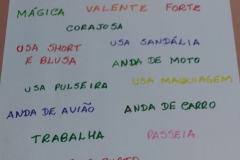 MÁGICA VALENTE FORTE
CORAJOSA
USA SHORT E BLUSA
USA SANDÁLIA
ANDA DE MOTO
USA PULSEIRA
USA MAQUIAGEM
ANDA DE AVIÃO
ANDA DE CARRO
TRABALHA
PASSEIA